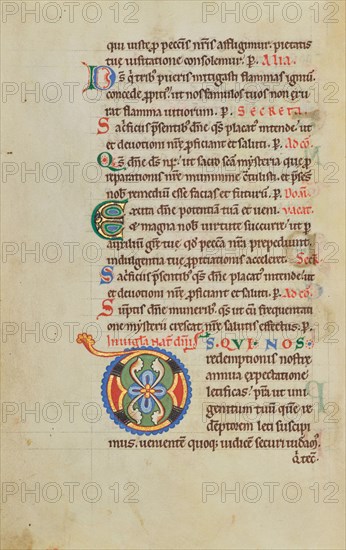 qui iuste pro peccatis nris affligimur. pietatis
tue uisitatione consolemur. p. Alia.
Ds q trib; pueris mitigasti flammas ignium
concede ppiti'. ut nos famulos tuos non exu
rat flamma uitiorum. p. Secreta.
Sacrificiis psentib; dne qs placat' intende. ut
et deuotioni nre pficiant et saluti. p. Ad co
Qs dne ds nr. ut sacro sca mysteria que p
reparationis nre munimine tulisti. et psens
nob remediu esse facias et futuru. p. Dom.
Excita dne potentia tua et ueni. Vacat.
Et magna nob uirtute succurre. ut p
auxiliu gre tue qd pecca nra prepediunt
indulgentia tue ppitiationis acceleret. Secr.
Sacrificiis psentib; qs dne placat' intende. ut
et deuotioni nre pficiant et saluti. p. Ad co
Suptis dne munerib; qs. ut cum frequentati
one mysterii crescat nre salutis effectus. p.
In uigla nat dni
DS QVI NOS
redemptionis nostre
annua expectatione
letificas. psta ut uni
genitum tuu que re
demptorem leti suscipi
mus. uenientem quoq; iudicem securi uideam'.
PHOTO12